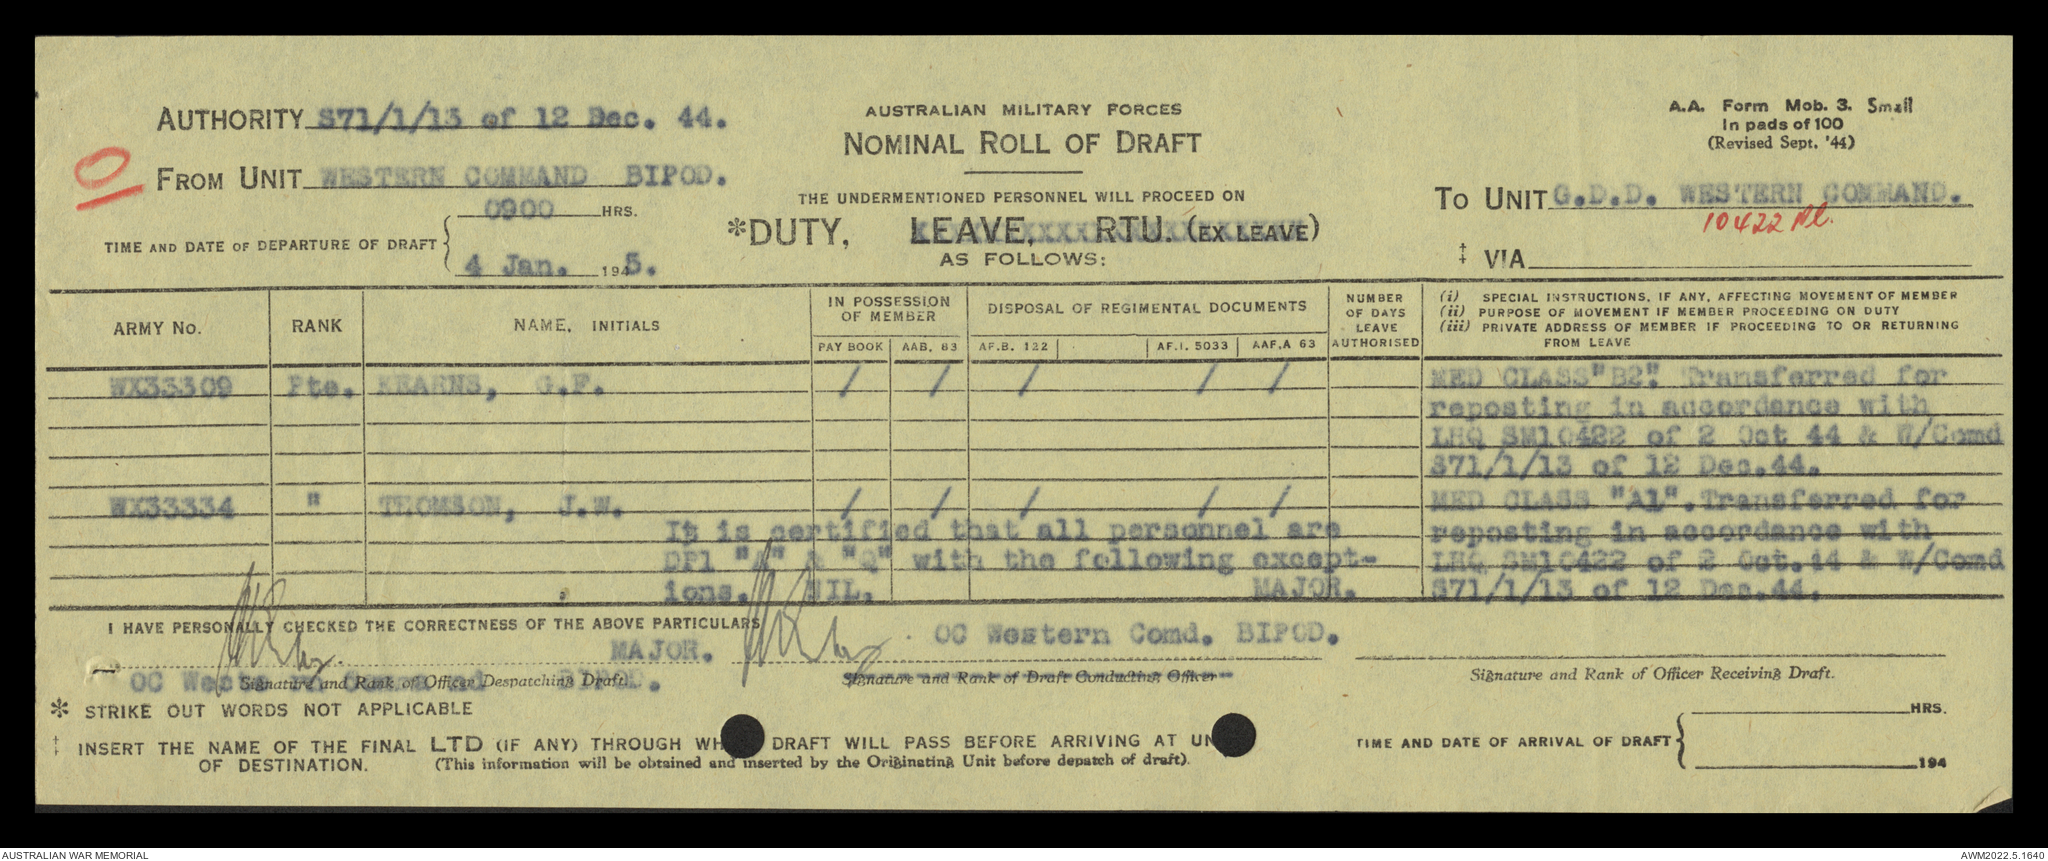 AUTHORITY S71/1/13 of 12 Dec. 44.
AUSTRALIAN MILITARY FORCES
NOMINAL ROLL OF DRAFT
A.A. Form Mob. 3. Small
In pads of 100
(Revised Sept. '44)
O
FROM UNIT WESTERN COMMAND BIPOD.
THE UNDERMENTIONED PERSONNEL WILL PROCEED ON
TO UNIT G.D.D. WESTERN COMMAND.
10422
TIME AND DATE OF DEPARTURE OF DRAFT { 0900 HRS.
4 Jan. 1945.
*DUTY, LEAVE, RTU. (EX LEAVE)
AS FOLLOWS:
‡ VIA
ARMY No.
RANK
NAME, INITIALS
IN POSSESSION
OF MEMBER
PAY BOOK
AAB. 83
DISPOSAL OF REGIMENTAL DOCUMENTS
AF.B. 122
AF.I. 5033
AAF.A 63
NUMBER
OF DAYS
LEAVE
AUTHORISED
(i) SPECIAL INSTRUCTIONS, IF ANY, AFFECTING MOVEMENT OF MEMBER
(ii) PURPOSE OF MOVEMENT IF MEMBER PROCEEDING ON DUTY
(iii) PRIVATE ADDRESS OF MEMBER IF PROCEEDING TO OR RETURNING
FROM LEAVE
WX33309 Pte. KEARNS, G.F. / / / / / MED CLASS "B2". Transferred for
reposting in accordance with
LHQ SM10422 of 2 Oct 44 & W/Comd
S71/1/13 of 12 Dec.44.
WX33334 " THOMSON, J.W. / / / / / MED CLASS "A1". Transferred for
reposting in accordance with
LHQ SM10422 of 2 Oct.44 & W/Comd
S71/1/13 of 12 Dec.44.
It is certified that all personnel are
DP1 "A" & "Q" with the following except-
ions. NIL. MAJOR.
OC Western Comd. BIPOD.
I HAVE PERSONALLY CHECKED THE CORRECTNESS OF THE ABOVE PARTICULARS
MAJOR.
OC Western Command BIPOD.
Signature and Rank of Officer Despatching Draft.
Signature and Rank of Draft Conducting Officer
Signature and Rank of Officer Receiving Draft.
* STRIKE OUT WORDS NOT APPLICABLE
‡ INSERT THE NAME OF THE FINAL LTD (IF ANY) THROUGH WH DRAFT WILL PASS BEFORE ARRIVING AT UN
OF DESTINATION. (This information will be obtained and inserted by the Originating Unit before depatch of draft).
TIME AND DATE OF ARRIVAL OF DRAFT { HRS.
194
AUSTRALIAN WAR MEMORIAL
AWM2022.5.1640